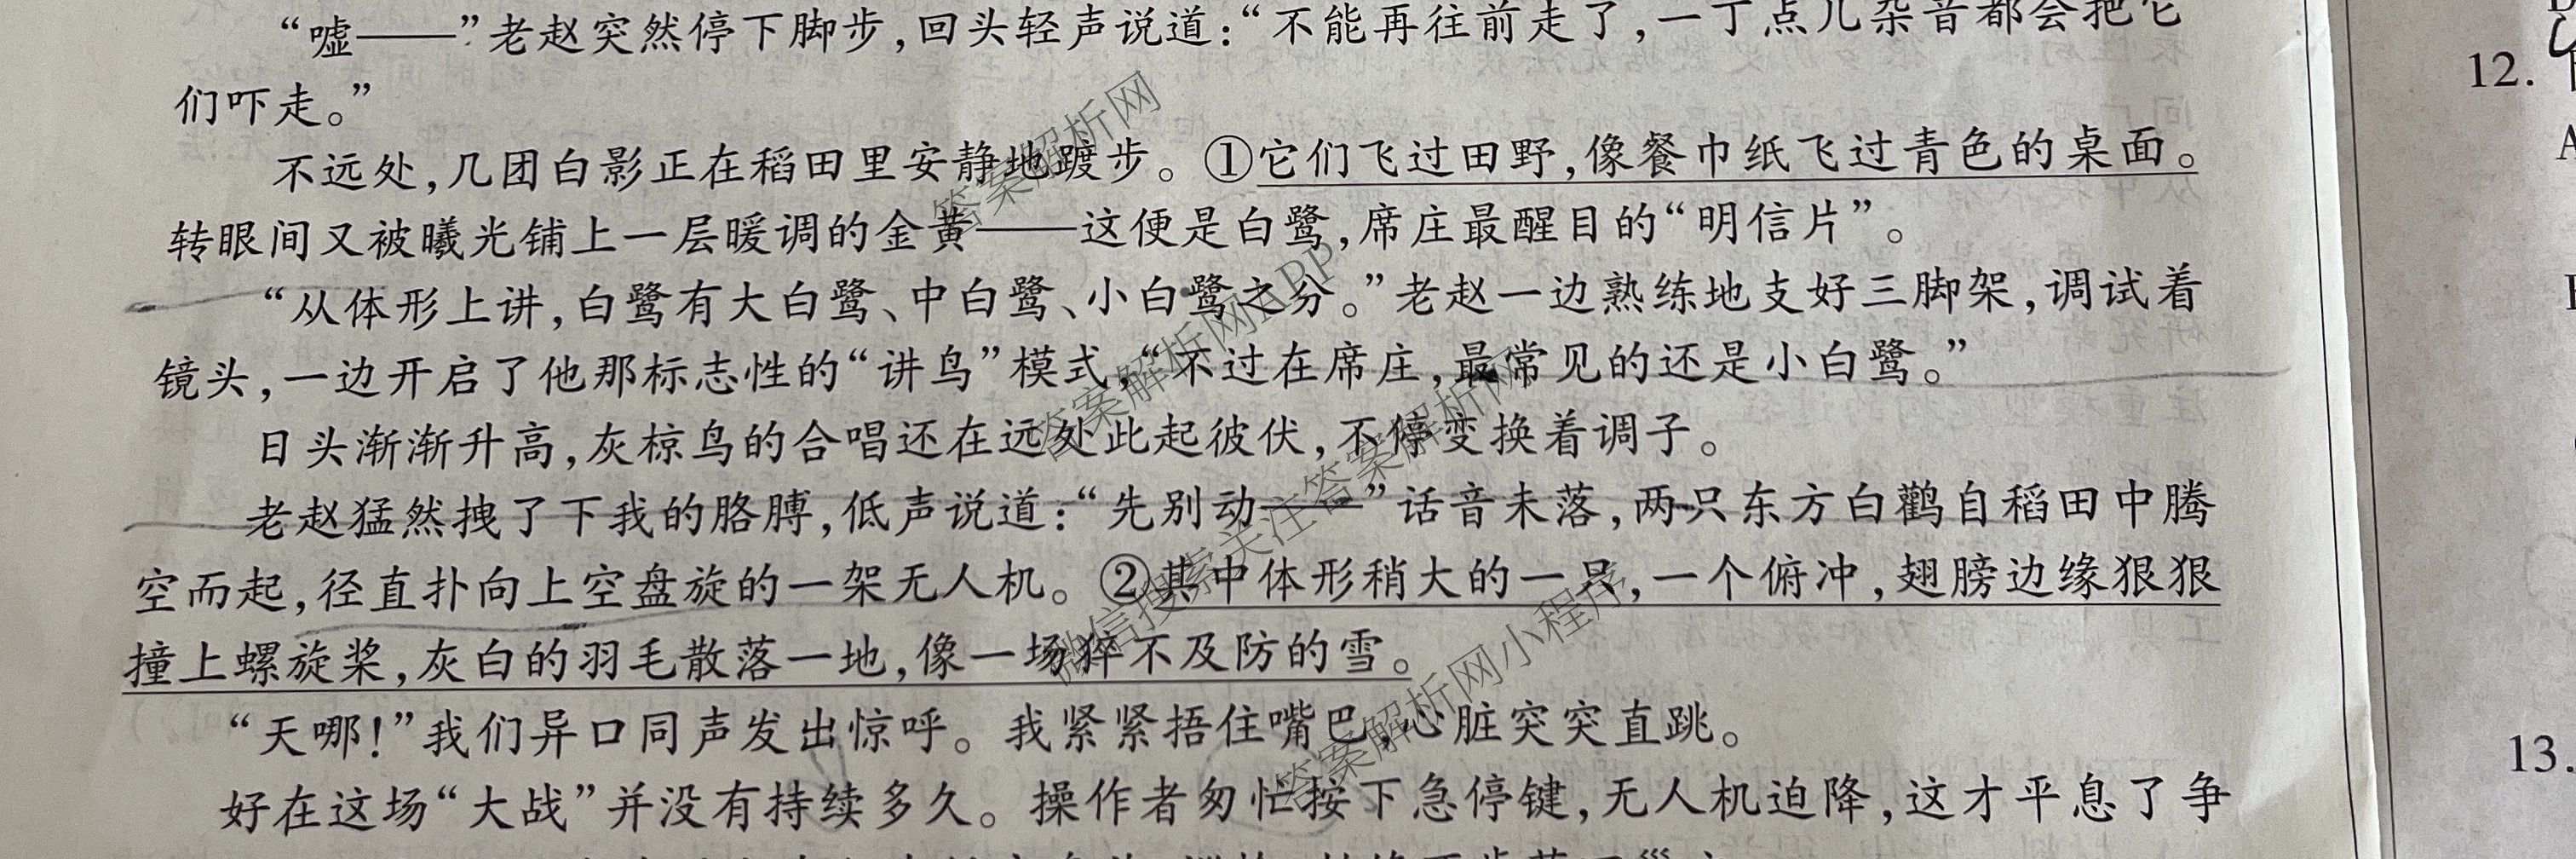 “嘘——”老赵突然停下脚步，回头轻声说道：“不能再往前走了，一丁点儿杂音都会把它
们吓走。”
不远处，几团白影正在稻田里安静地踱步。①它们飞过田野，像餐巾纸飞过青色的桌面。
转眼间又被曦光铺上一层暖调的金黄——这便是白鹭，席庄最醒目的“明信片”。
“从体形上讲，白鹭有大白鹭、中白鹭、小白鹭之分。”老赵一边熟练地支好三脚架，调试着
镜头，一边开启了他那标志性的“讲鸟”模式，“不过在席庄，最常见的还是小白鹭。”
日头渐渐升高，灰椋鸟的合唱还在远处此起彼伏，不停变换着调子。
老赵猛然拽了下我的胳膊，低声说道：“先别动——”话音未落，两只东方白鹳自稻田中腾
空而起，径直扑向上空盘旋的一架无人机。②其中体形稍大的一只，一个俯冲，翅膀边缘狠狠
撞上螺旋桨，灰白的羽毛散落一地，像一场猝不及防的雪。
“天哪！”我们异口同声发出惊呼。我紧紧捂住嘴巴，心脏突突直跳。
好在这场“大战”并没有持续多久。操作者匆忙按下急停键，无人机迫降，这才平息了争
12.
A
13.
答案解析网
答案解析网APP
微信搜索关注答案解析网
答案解析网小程序